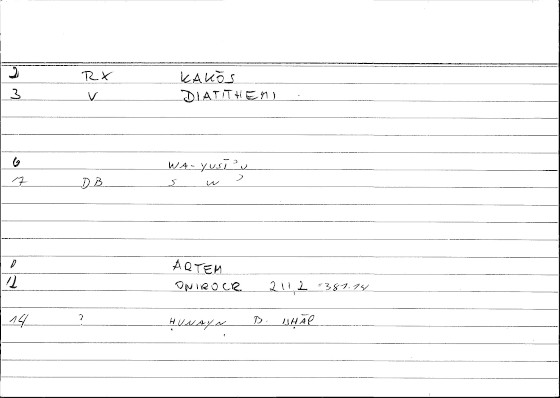 2 RX KAKŌS
3 V DIATITHEMI
6 WA-YUSĪʾU
7 DB S W ʾ
ARTEM
11 ONIROCR 211,2 =381.14
14 ? ḤUNAYN B. ISḤĀQ